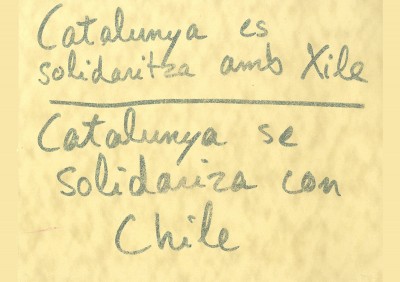 Catalunya es
solidaritza amb Xile
Catalunya se
solidariza con
Chile